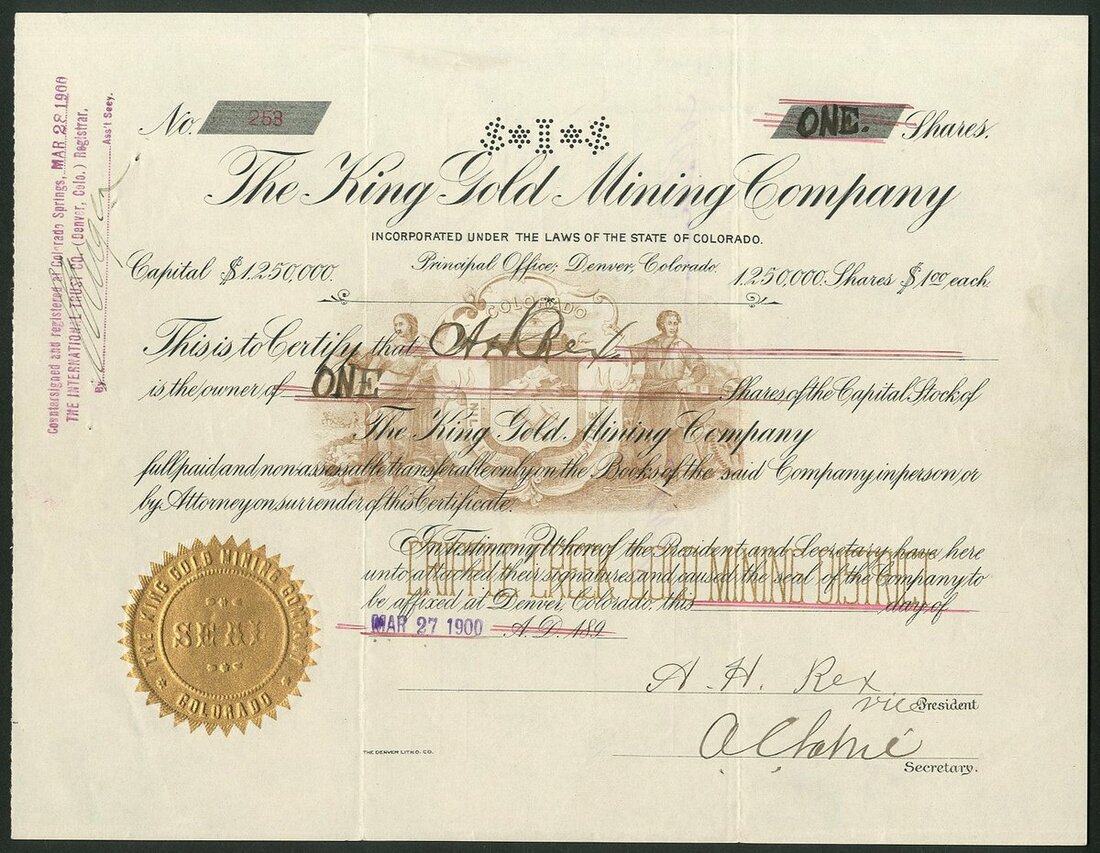 No. 253
$*I*$
ONE. Shares.
The King Gold Mining Company
INCORPORATED UNDER THE LAWS OF THE STATE OF COLORADO.
Capital $1,250,000.
Principal Office; Denver, Colorado.
1,250,000. Shares $1.00 each
COLORADO
This is to Certify that A H Rex
is the owner of ONE Shares of the Capital Stock of
The King Gold Mining Company
full paid and non-assessable transferable only on the Books of the said Company in person or
by Attorney on surrender of this Certificate.
In Testimony Whereof the President and Secretary have here
unto attached their signatures and caused the seal of the Company to
be affixed at Denver, Colorado, this day of
MAR 27 1900 A.D. 189
CRIPPLE CREEK GOLD MINING DISTRICT
A. H. Rex
vice President
Secretary.
THE DENVER LITHO. CO.
THE KING GOLD MINING COMPANY
SEAL
COLORADO
Countersigned and registered at Colorado Springs, MAR 28 1900
THE INTERNATIONAL TRUST CO. (Denver, Colo.) Registrar,
By Ass't Secy.